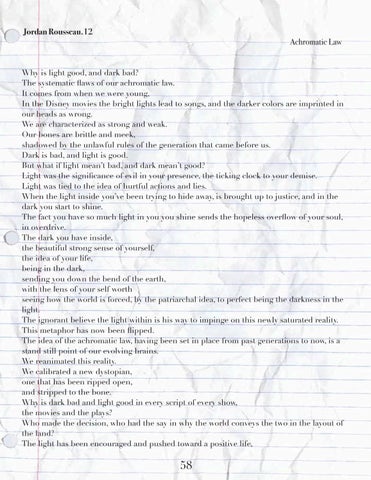 Jordan Rousseau.12
Achromatic Law
Why is light good, and dark bad?
The systematic flaws of our achromatic law.
It comes from when we were young,
In the Disney movies the bright lights lead to songs, and the darker colors are imprinted in
our heads as wrong.
We are characterized as strong and weak.
Our bones are brittle and meek,
shadowed by the unlawful rules of the generation that came before us.
Dark is bad, and light is good.
But what if light mean't bad, and dark mean't good?
Light was the significance of evil in your presence, the ticking clock to your demise.
Light was tied to the idea of hurtful actions and lies.
When the light inside you've been trying to hide away, is brought up to justice, and in the
dark you start to shine.
The fact you have so much light in you you shine sends the hopeless overflow of your soul,
in overdrive.
The dark you have inside,
the beautiful strong sense of yourself,
the idea of your life,
being in the dark,
sending you down the bend of the earth,
with the lens of your self worth
seeing how the world is forced, by the patriarchal idea, to perfect being the darkness in the
light.
The ignorant believe the light within is his way to impinge on this newly saturated reality.
This metaphor has now been flipped.
The idea of the achromatic law, having been set in place from past generations to now, is a
stand still point of our evolving brains.
We reanimated this reality.
We calibrated a new dystopian,
one that has been ripped open,
and stripped to the bone.
Why is dark bad and light good in every script of every show,
the movies and the plays?
Who made the decision, who had the say in why the world conveys the two in the layout of
the land?
The light has been encouraged and pushed toward a positive life,
58